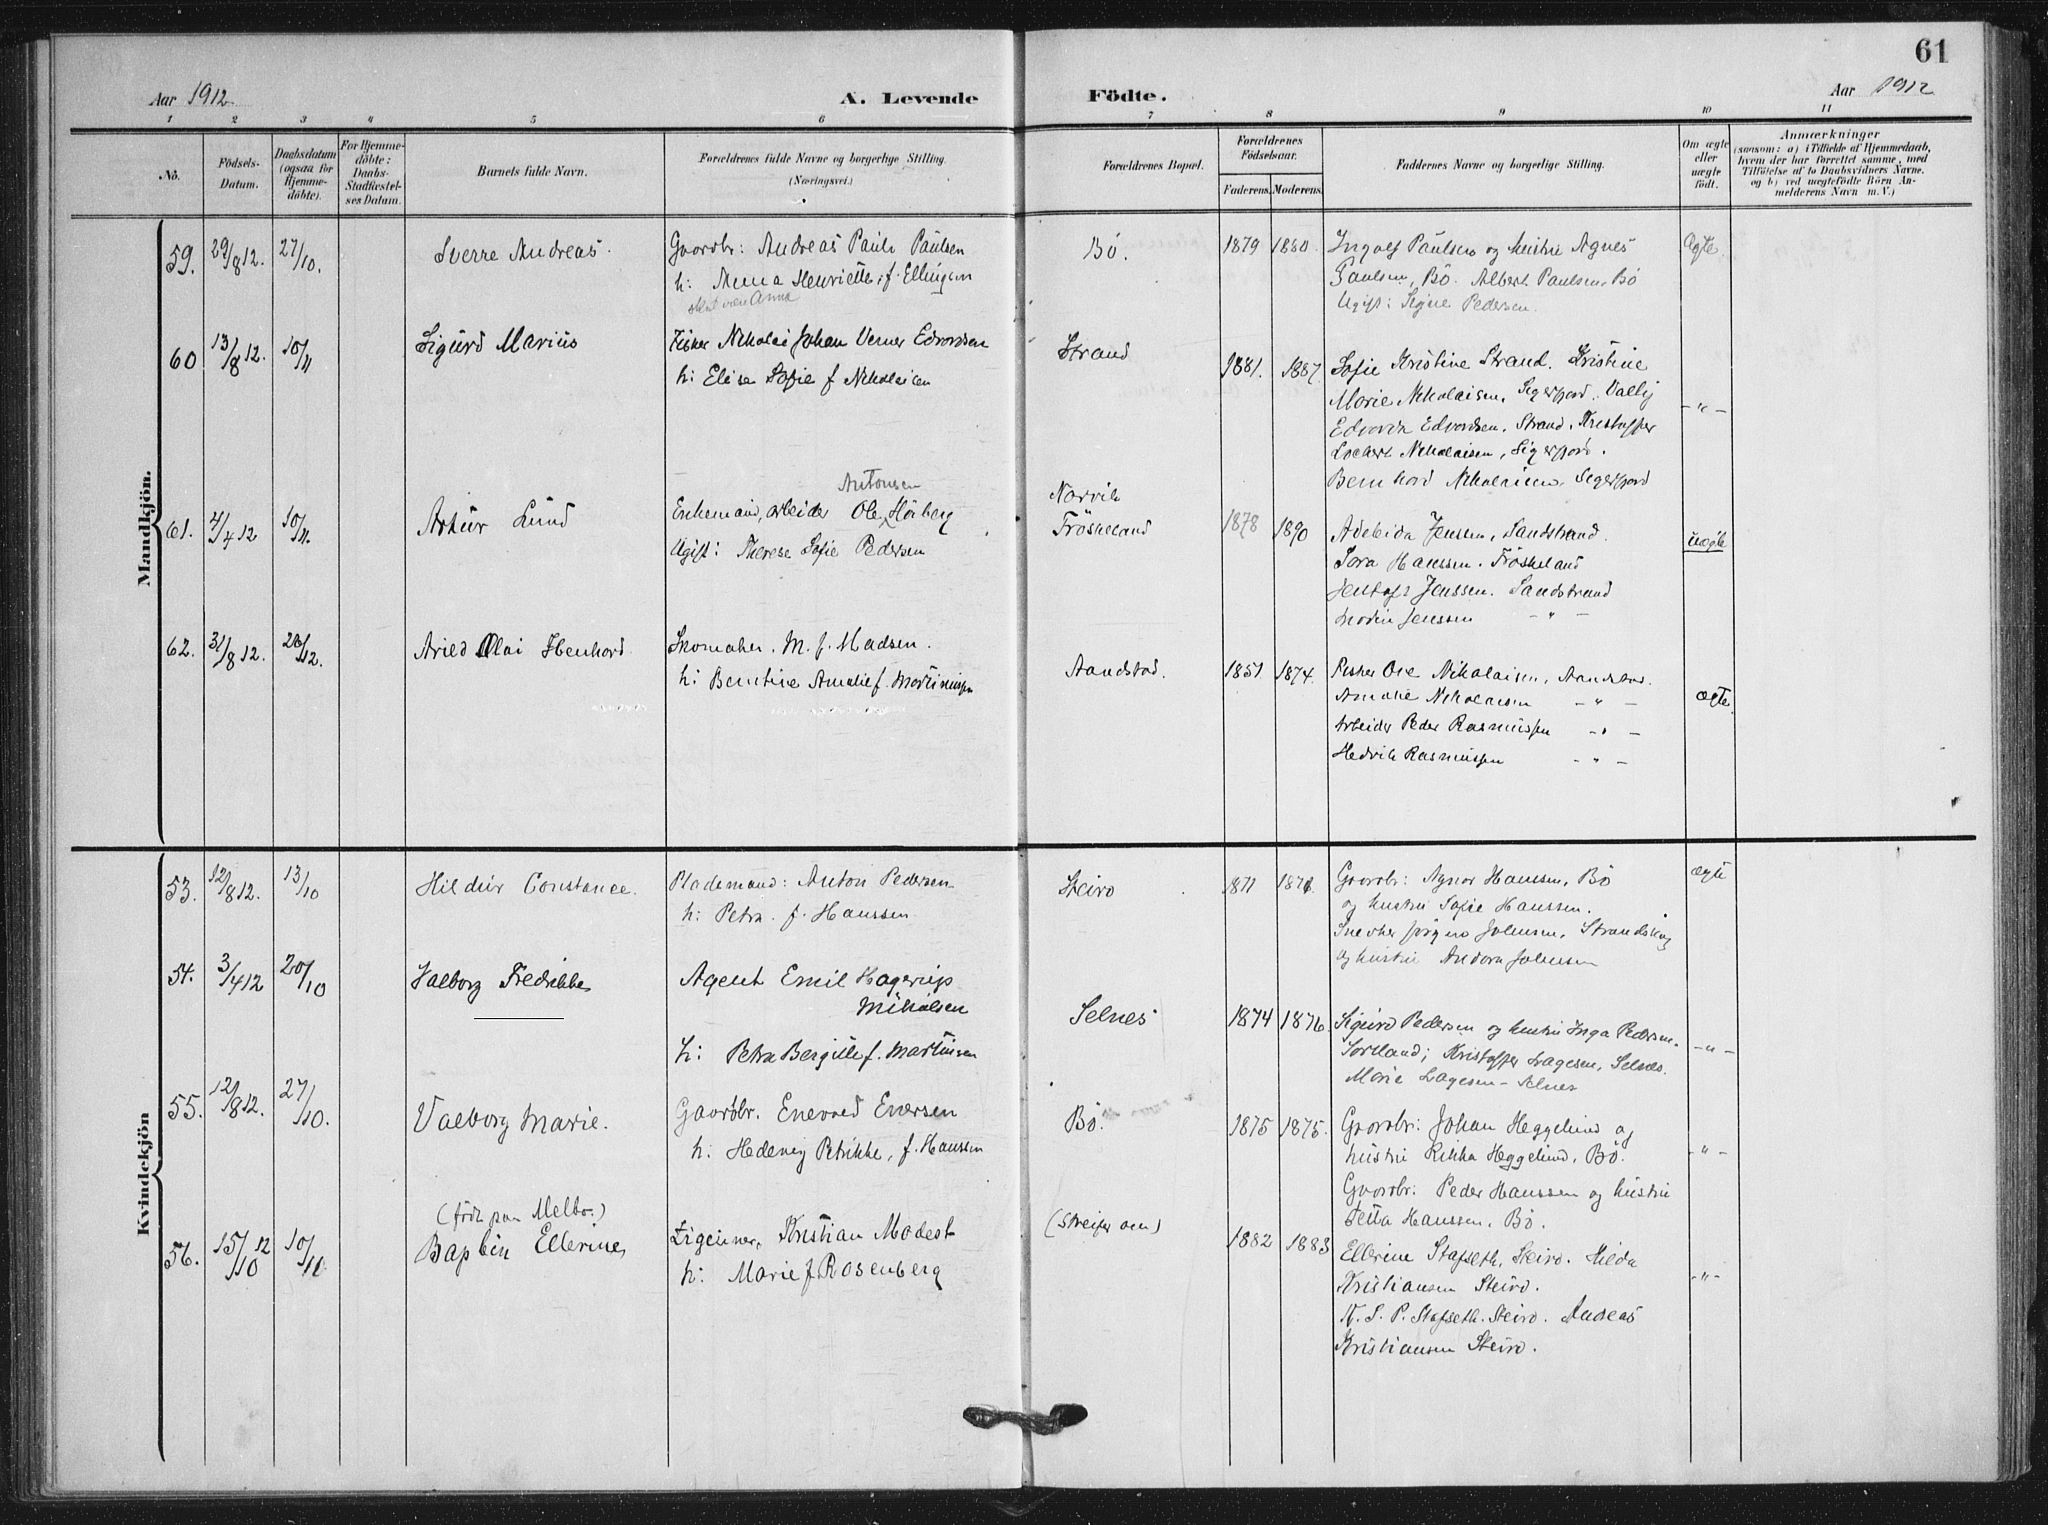 61
Aar 1912
A. Levende
Födte.
Aar 1912
1 2 3 4 5 6 7 8 9 10 11
No.
Födsels-
Datum.
Daabsdatum
(ogsaa for
Hjemme-
döbte).
For Hjemme-
döbte:
Daabs-
Stadfæstel-
ses Datum.
Barnets fulde Navn.
Forældrenes fulde Navne og borgerlige Stilling.
(Næringsvei.)
Forældrenes Bopæl.
Forældrenes
Födselsaar.
Faderens. Moderens.
Faddernes Navne og borgerlige Stilling.
Om ægte
eller
uægte
födt.
Anmærkninger
(saasom: a) i Tilfælde af Hjemmedaab,
hvem der har forrettet samme, med
Tilföielse af to Daabsvidners Navne.
og b) ved uægtefödte Börn An-
melderens Navn m. V.)
Mandkjön.
59. 29/8 12. 27/10. Sverre Andreas.
Gaardbr: Andreas Paulsen
h: Anna Henriette, f. Ellingsen
skal være Anna
Bö. 1879 1880.
Ingolf Paulsen og hustru Agnes
Paulsen, Bö. Albert Paulsen, Bö
Ugift: Signe Pedersen.
Ægte.
60 13/8 12. 10/11 Sigurd Marius
Fisker Nikolai Johan Verner Edvardsen
h: Elise Sofie f Nikolaisen
Strand 1881. 1887
Sofie Kristine Strand. Kristine
Marie Nikolaisen, Sigerfjord.
Edvardsen, Strand. Kristoffer
Lockert Nikolaisen, Sigerfjord.
Bernhard Nikolaisen Sigerfjord
- " -
61. 4/4 12 10/11. Artur Lund
Antonsen
Enkemand, arbeider Ole Höiberg
Ugift: Therese Sofie Pedersen
Narvik
Fröskeland
1878 1890
Adeleida Jenssen, Sandstrand.
Hanssen. Fröskeland
Jenssen. Sandstrand
Jenssen - " -
uægte
62. 31/8 12. 26/12. Olai
Skomaker. M. J. Madsen.
h: Berntine Amalie f. Martinussen
Aandstad. 1851 1874.
Fisker Ole Nikolaisen, Aandstad.
Amalie Nikolaisen - " -
Arbeider Peder Rasmussen - " -
Hedvik Rasmussen - " -
ægte.
Kvindekjön
53. 12/8 12. 13/10 Hildur Constance.
Pladsmand: Anton Pedersen
h: Petra. f. Hanssen
Steiro 1871
Gaardbr: Agnar Hanssen, Bö
og hustru Sofie Hanssen.
Snedker Jörgen Johnsen, Strandskog
og hustru Andora Johnsen
ægte
54. 3/4 12 20/10 Valborg Fredrikke
Agent Emil Hagerup
Mikalsen
h: Petra Bergitte f. Martinsen
Selnes 1874 1876.
Sigurd Pedersen og hustru Inga Pedersen.
Sortland; Kristoffer Lagesen, Selnes.
Marie Lagesen - Selnes
- " -
55. 12/8 12. 27/10. Valborg Marie.
Gaardbr. Enevold Enersen
h: Hedevig Petrikke, f. Hanssen
Bö. 1875 1875.
Gaardbr: Johan Heggelund og
hustru Rikka Heggelund, Bö.
Gaardbr: Peder Hanssen og hustru
Jetta Hanssen, Bö.
- " -
(födt paa Melbo.)
56. 15/10 12 10/10 Ellerine
Zigeuner, Kristian Modest
h: Marie f. Rosenberg
(streifer om) 1882 1883
Ellerine Stafseth, Steiro. Hilda
Kristiansen Steiro.
N. S. P. Stafseth. Steiro. Andreas
Kristiansen Steiro.
- " -